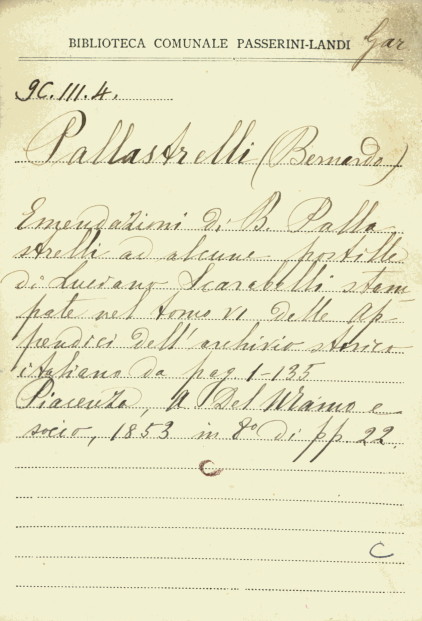 BIBLIOTECA COMUNALE PASSERINI-LANDI Gar
9C.III.4.
Pallastrelli (Bernardo)
Emendazioni di B. Palla-
strelli ad alcune postille
di Luciano Scarabelli stam
pate nel tomo VI delle Ap-
pendici dell'archivio storico
italiano da pag 1-135
Piacenza, A Del Maino e
socio, 1853 in 8º di pp 22.
C
C